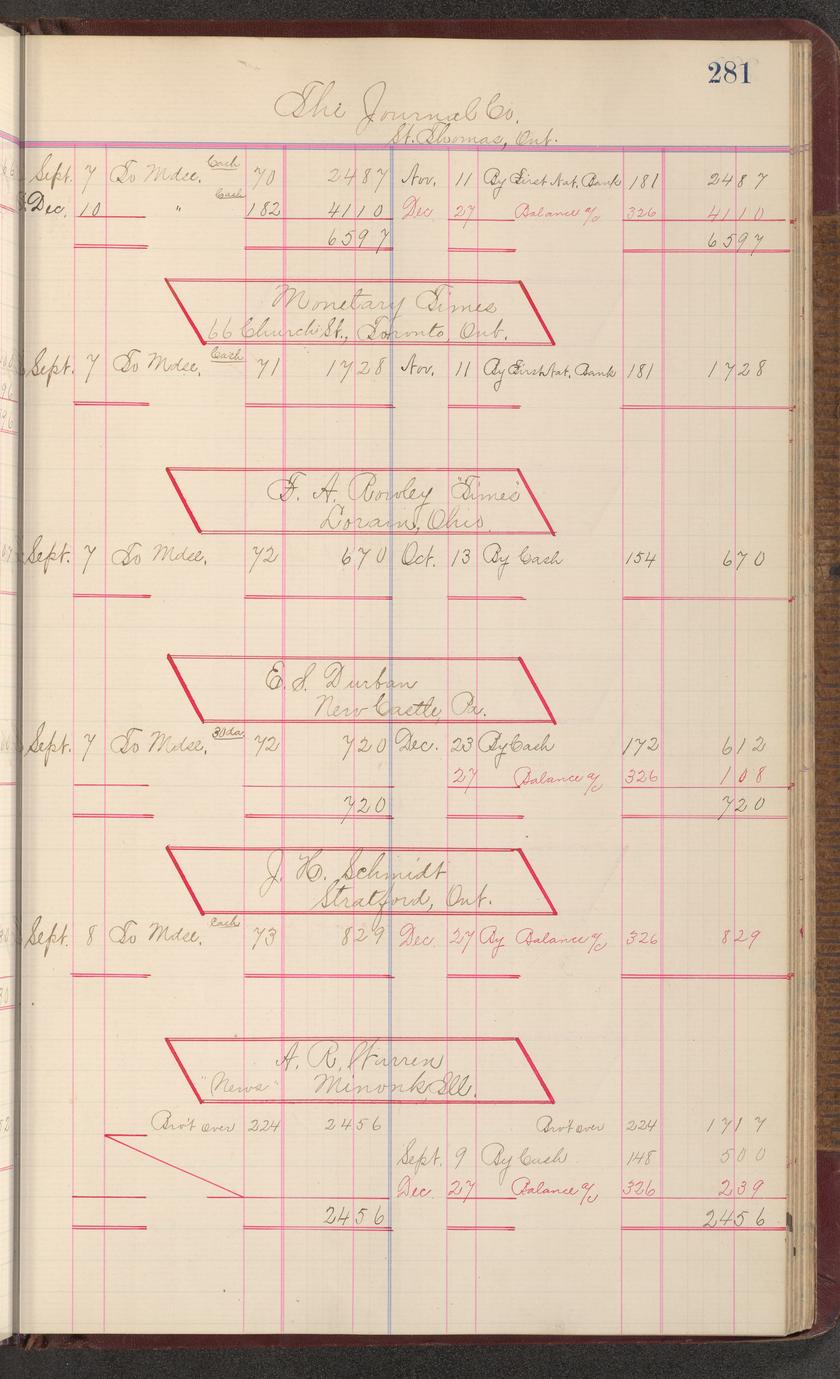 281
The Journal Co.
St. Thomas, Ont.
Sept. 7 To Mdse. Cash 70 2487 Nov. 11 By First Nat. Bank 181 2487
Dec. 10 " Cash 182 4110 Dec 27 Balance a/c 326 4110
6597 6597
Monetary Times
66 Church St., Toronto, Ont.
Sept. 7 To Mdse. Cash 71 1728 Nov. 11 By First Nat. Bank 181 1728
F. A. Rowley "Times"
Lorain, Ohio.
Sept. 7 To Mdse. 72 670 Oct. 13 By Cash 154 670
E. S. Durban
New Castle, Pa.
Sept. 7 To Mdse. 30 da 72 720 Dec. 23 By Cash 172 612
27 Balance a/c 326 108
720 720
J. H. Schmidt
Stratford, Ont.
Sept. 8 To Mdse. Cash 73 829 Dec. 27 By Balance a/c 326 829
A. R. Warren
"News" Minonk, Ill.
Bro't over 224 2456 Bro't over 224 1717
Sept. 9 By Cash 148 500
Dec. 27 Balance a/c 326 239
2456 2456